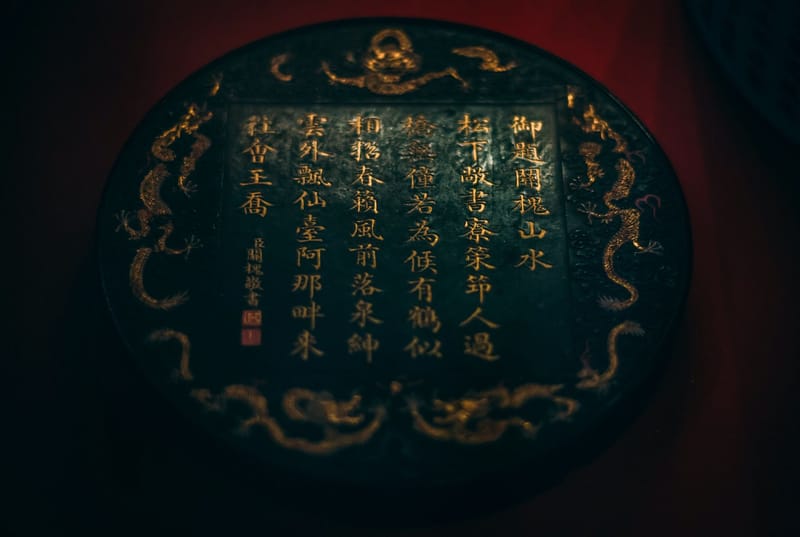 御題關槐山水
松下敞書寮策笻人過
橋 僮若為候有鶴似
相招春籟風前落泉紳
雲外飄仙臺阿那畔来
會王喬
臣關槐敬書